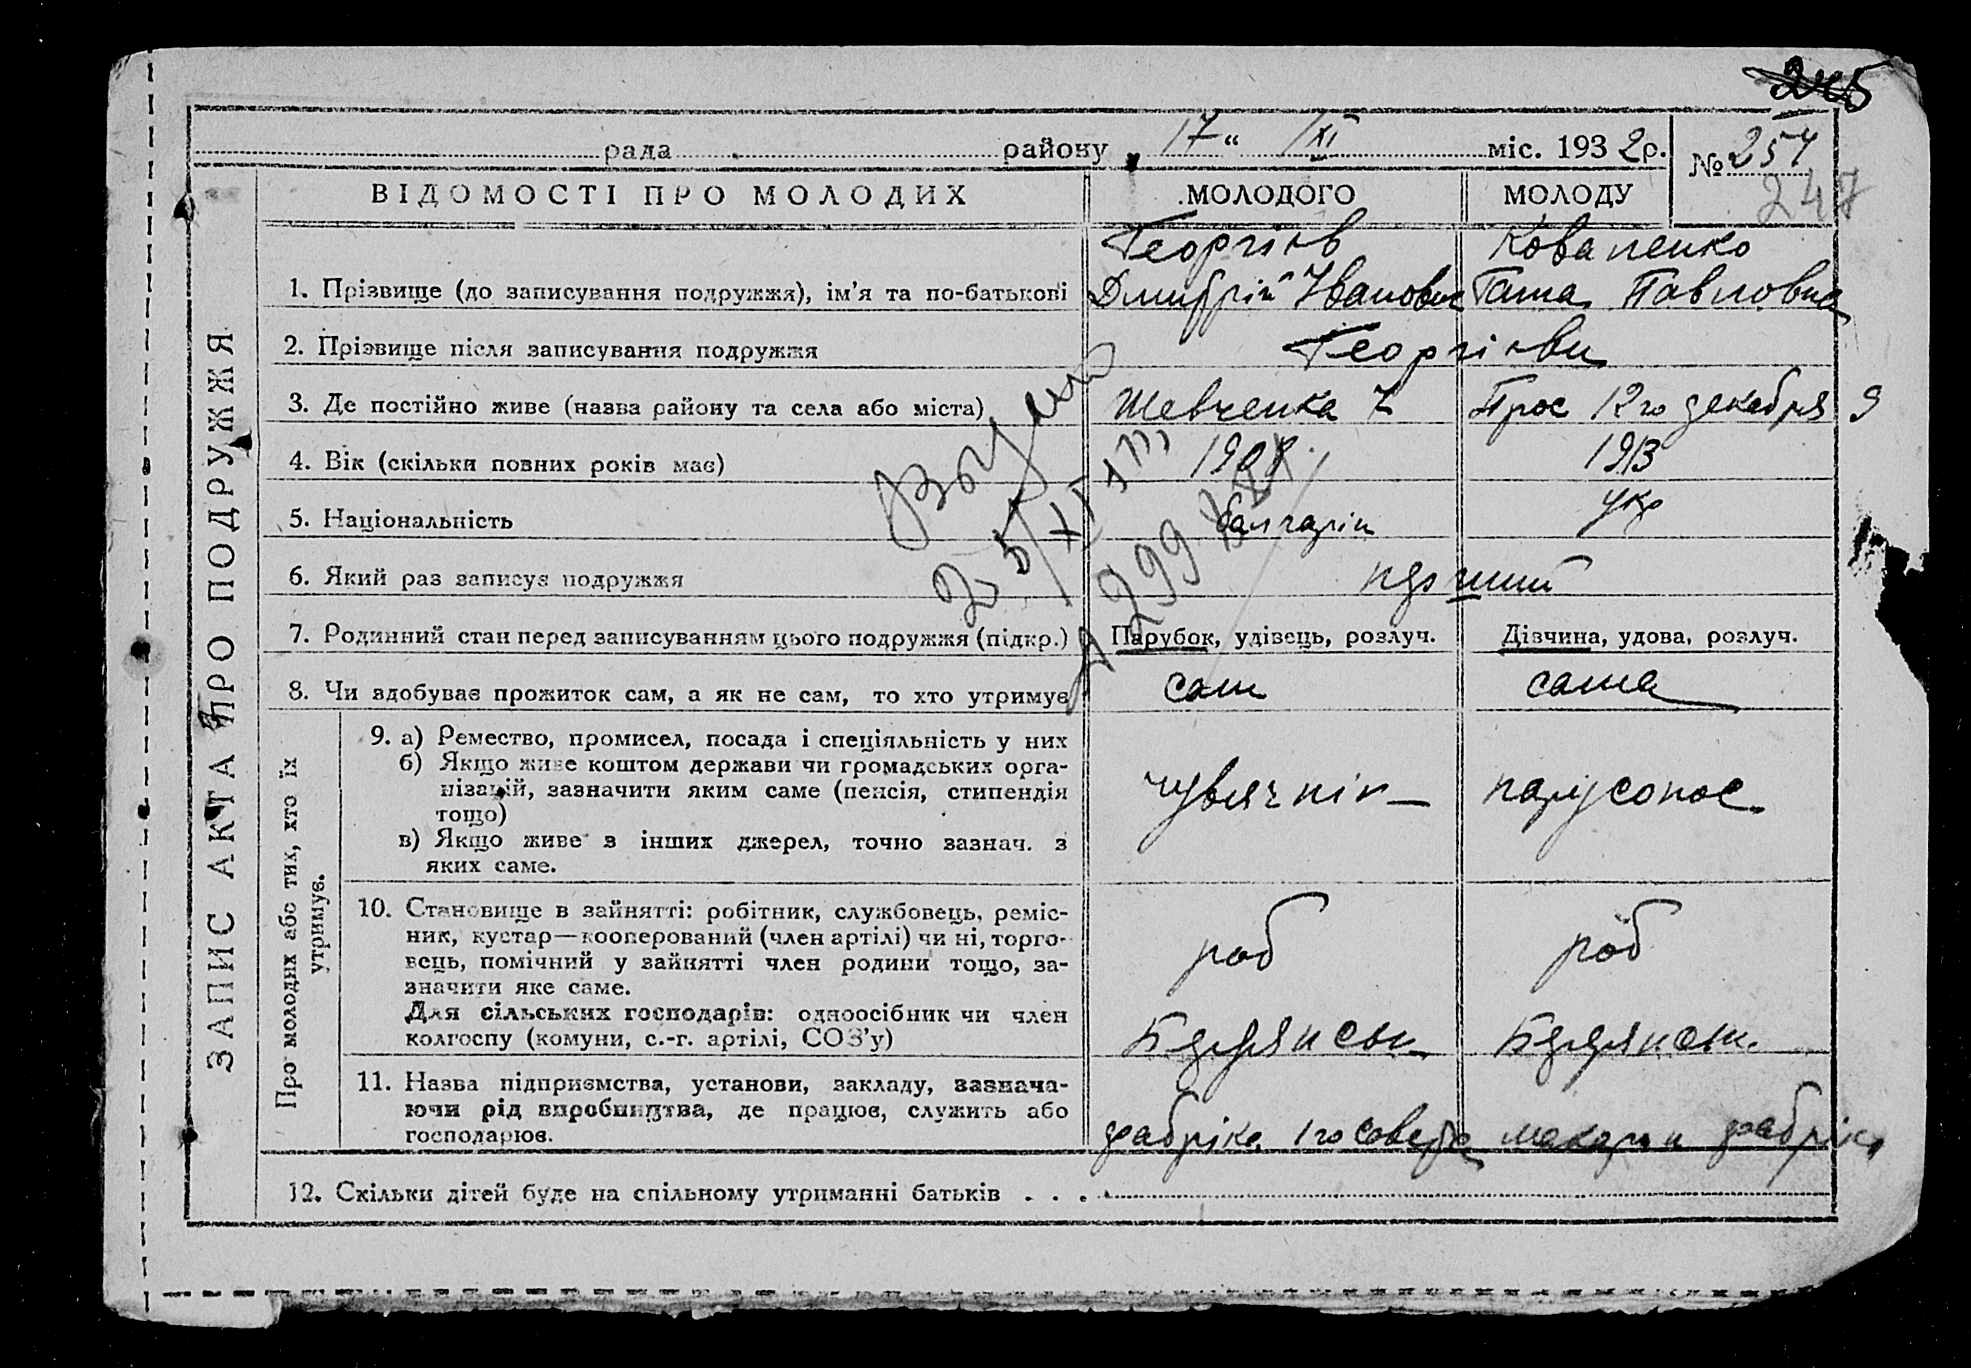 245
рада района „17“ XI міс. 1932р.
№ 254
247
ВІДОМОСТІ ПРО МОЛОДИХ МОЛОДОГО МОЛОДУ
ЗАПИС АКТА ПРО ПОДРУЖЖЯ
1. Прізвище (до записування подружжя), ім'я та по-батькові Георгієв Дмитрій Іванович Коваленко Павловна
2. Прізвище після записування подружжя Георгієви
3. Де постійно живе (назва району та села або міста) Шевченка 7 Прос 12го декабря 9
4. Вік (скільки повних років має) 1908 1913
5. Національність болгарін укр
6. Який раз записує подружжя
7. Родинний стан перед записуванням цього подружжя (підкр.) Парубок, удівець, розлуч. Дівчина, удова, розлуч.
8. Чи здобуває прожиток сам, а як не сам, то хто утримує сам сама
Про молодих або тих, хто їх
утримує.
9. а) Ремество, промисел, посада і спеціяльність у них
б) Якщо живе коштом держави чи громадських орга-
нізацій, зазначити яким саме (пенсія, стипендія
тощо)
в) Якщо живе з інших джерел, точно зазнач. з
яких саме.
чувячнік
10. Становище в зайнятті: робітник, службовець, реміс-
ник, кустар—кооперований (член артілі) чи ні, торго-
вець, помічний у зайнятті член родини тощо, за-
значити яке саме.
Для сільських господарів: одноосібник чи член
колгоспу (комуни, с.-г. артілі, СОЗ'у)
роб роб
11. Назва підприємства, установи, закладу, зазнача-
ючи рід виробництва, де працює, служить або
господарює.
фабріка макарон фабріка
12. Скільки дітей буде на спільному утриманні батьків . . .